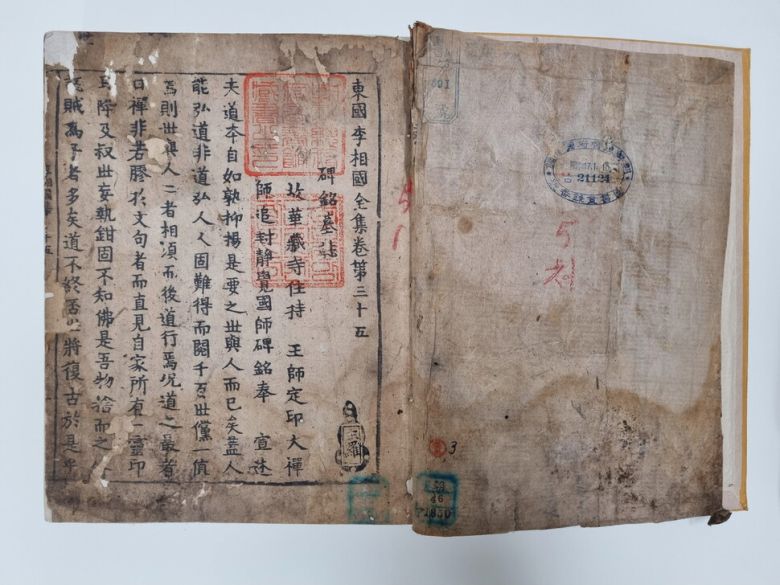 601
21124
3
46
東國李相國全集卷第三十五
碑銘墓誌
故華藏寺住持 王師定印大禪
師追封靜覺國師碑銘奉 宣述
夫道本自如孰抑揚是要之世與人而已矣蓋人
能弘道非道弘人人固難得而閱千百世儻一値
焉則世與人二者相湏而後道行焉况道之最者
曰禪非若膠於文句者而直見自家所有一靈印
降及叔世妄執鉗固不知佛是吾物捨而之
賊爲子者多矣道不終否將復古於是乎